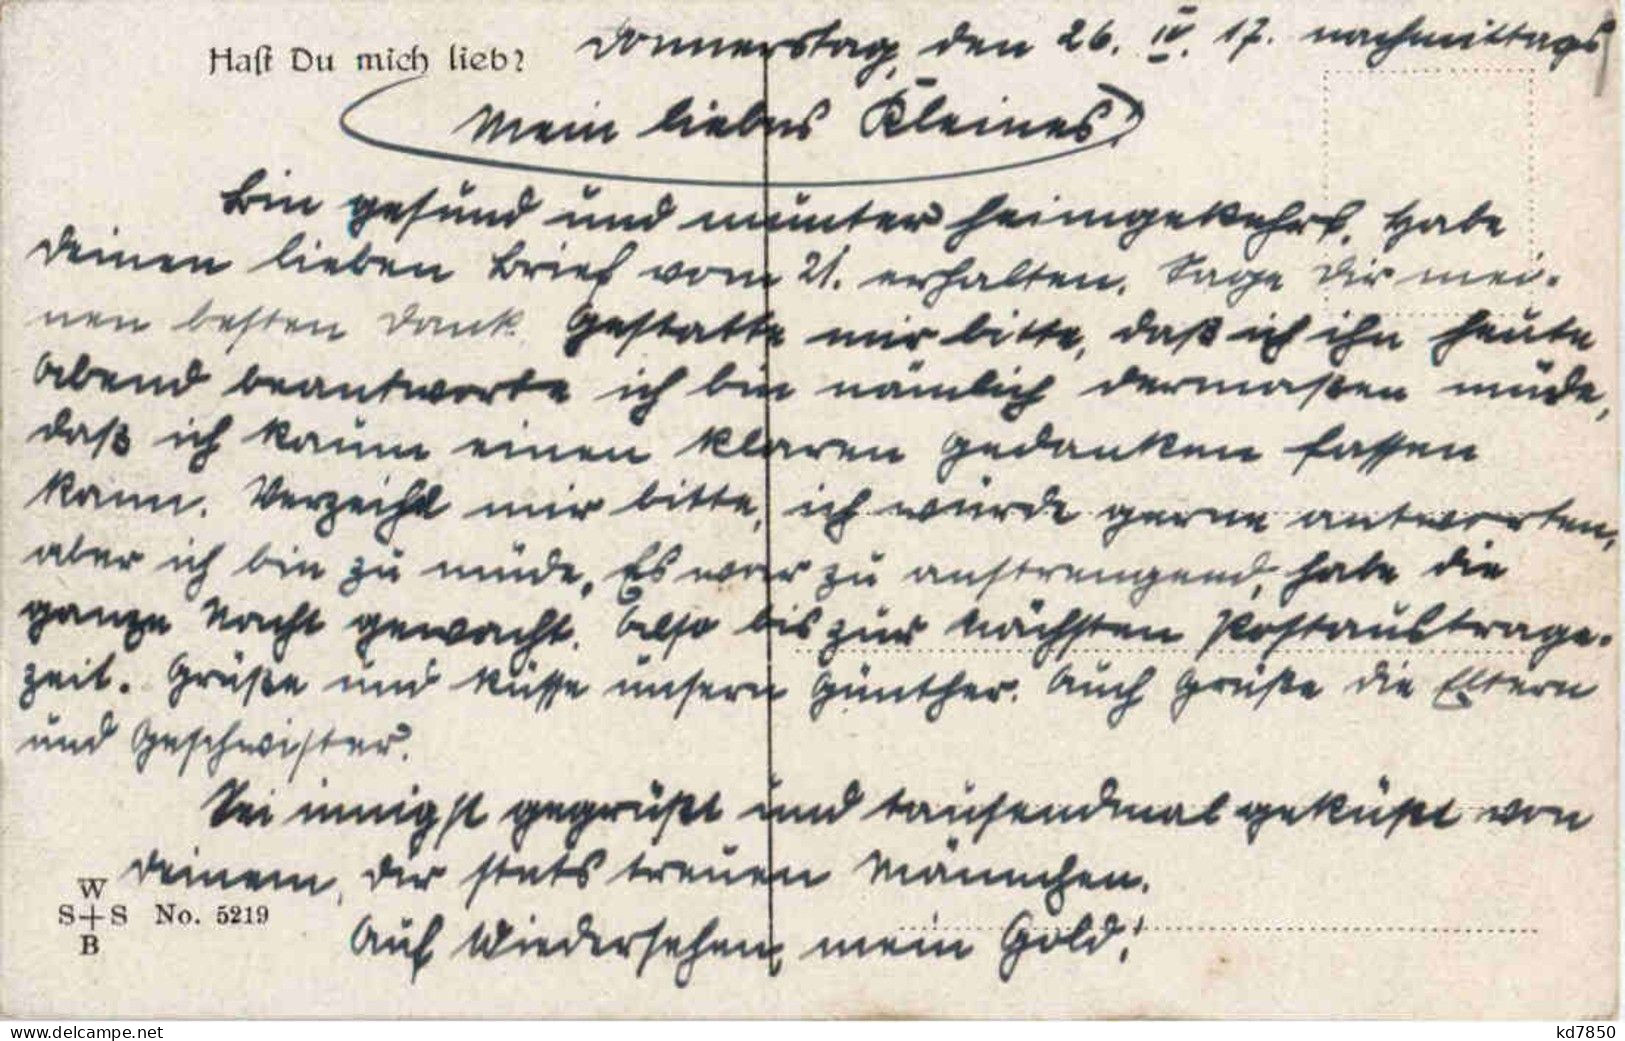 Hast Du mich lieb?
Donnerstag, den 26. IV. 17. nachmittags
Mein liebes Kleines!
Bin gesund und munter heimgekehrt. Habe
deinen lieben Brief vom 21. erhalten. Sage dir mei-
nen besten Dank. Gestatte mir bitte, daß ich ihn heute
Abend beantworte ich bin nämlich dermaßen müde,
daß ich kaum einen klaren Gedanken fassen
kann. Verzeihe mir bitte, ich würde gerne antworten,
aber ich bin zu müde. Es war zu anstrengend, habe die
ganze Nacht gewacht. Also bis zur nächsten Postaustrage-
zeit. Grüße und küsse unsern Günther. Auch Grüße die Eltern
und Geschwister.
Sei innigst gegrüßt und tausendmal geküßt von
deinem, dir stets treuen Männchen.
Auf Wiedersehen, mein Gold!
W
S S No. 5219
B
kd7850